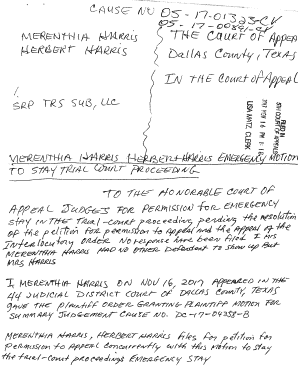 CAUSE NO 05-17-01323-CV
05-17-00891-CV
MERENTHIA HARRIS
HERBERT HARRIS
THE COURT OF APPEAL
Dallas County, Texas
IN THE COURT OF APPEAL
SRP TRS SUB, LLC
LISA MATZ, CLERK
MERENTHIA HARRIS HERBERT HARRIS EMERGENCY MOTION
TO STAY TRIAL COURT PROCEEDING
TO THE HONORABLE COURT OF
APPEAL JUDGES FOR PERMISSION FOR EMERGENCY
STAY IN THE TRIAL-COURT PROCEEDING, PENDING THE RESOLUTION
OF THE PETITION FOR PERMISSION TO APPEAL AND THE APPEAL OF THE
INTERLOCUTORY ORDER NO RESPONSE HAVE BEEN FILED I HIS
MERENTHIA HARRIS HAD NO OTHER DEFENDANT TO SHOW UP BUT
MRS HARRIS
I, MERENTHIA HARRIS ON NOV 16, 2017 APPEARED IN THE
44 JUDICIAL DISTRICT COURT OF DALLAS COUNTY, TEXAS
GAVE THE PLAINTIFF ORDER GRANTING PLAINTIFF MOTION FOR
SUMMARY JUDGEMENT CAUSE NO. DC-17-04358-B
MERENTHIA HARRIS, HERBERT HARRIS FILES FOR PETITION FOR
PERMISSION TO APPEAL CONCURRENTLY WITH THIS MOTION TO STAY
THE TRIAL-COURT PROCEEDINGS EMERGENCY STAY